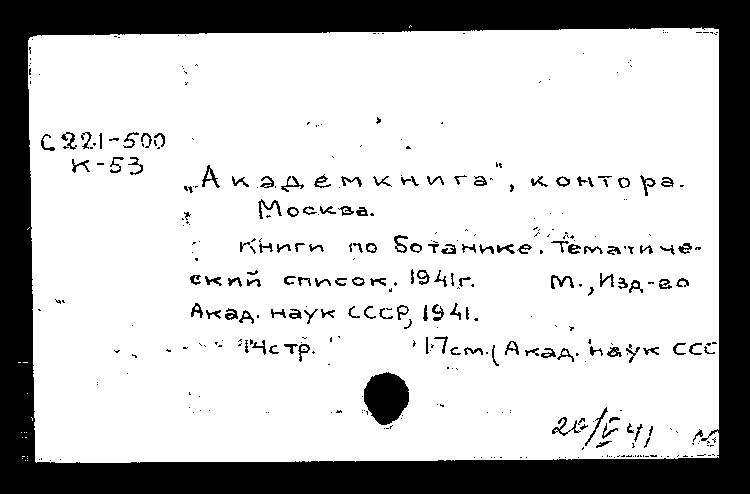 С221-500
К-53
„Академкнига", контора.
Москва.
Книги по ботанике. Тематиче-
ский список. 1941г. М., Изд-во
Акад. наук СССР, 1941.
14стр. 17см. (Акад. наук ССС
41